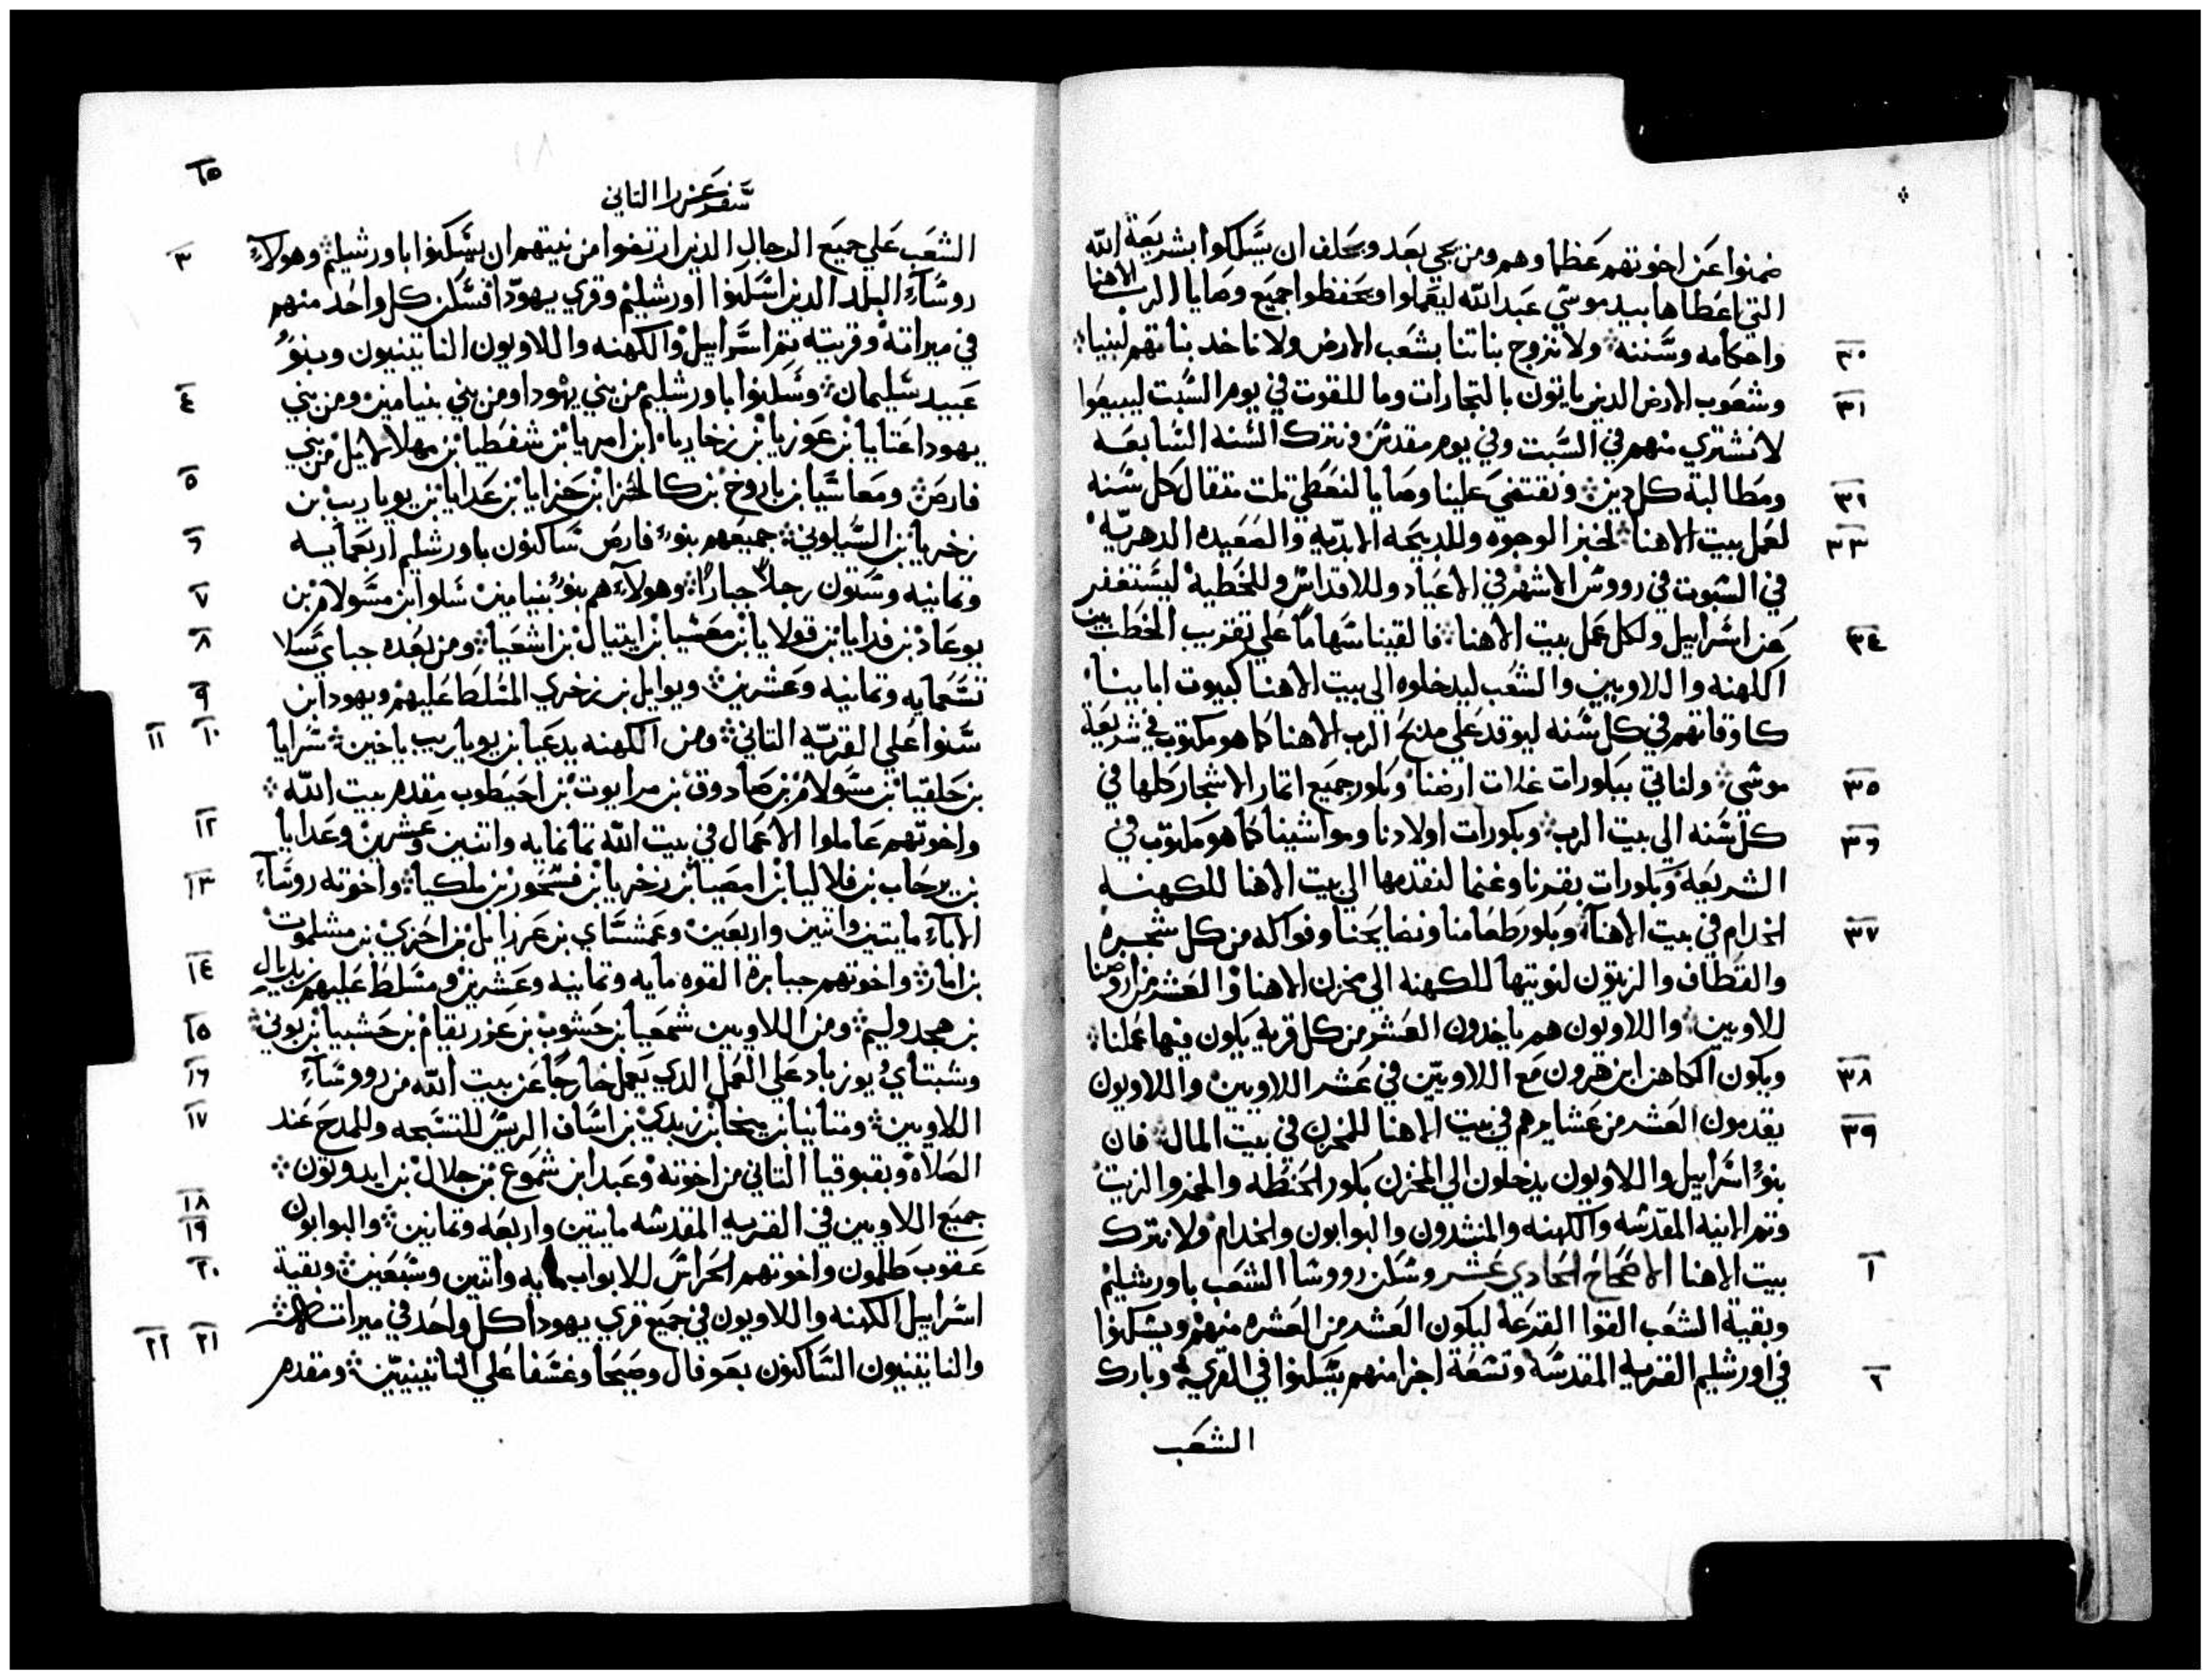 ضمنوا عن اخوتهم عظما وهم ومن يجي بعد ويحلف ان يسلكوا بشريعة الله
التي اعطاها بيد موسي عبد الله ليعملوا ويحفظوا جميع وصايا الرب الاهنا
٣٠ واحكامه وسننه ولا نزوج بناتنا بشعب الارض ولا ناخد بناتهم لبنينا
٣١ وشعوب الارض الدين ياتون بالتجارات وما للقوت في يوم السبت ليبيعوا
لا نشتري منهم في السبت وفي يوم مقدس ونترك السنه السابعه
٣٢ ومطالبة كل دين ونقتضي علينا وصايا لنعطي تلت متقال كل سنه
٣٣ لعمل بيت الاهنا لخبز الوجوه وللدبيحه الابديه والصعيده الدهريه
في السبوت في رووس الاشهر في الاعياد وللاقداس وللخطية ليستغفر
٣٤ عن اسراييل ولكل عمل بيت الاهنا فالقينا سهاما علي تقريب الحطب بين
الكهنه واللاويين والشعب ليدخلوه الي بيت الاهنا كبيوت ابايينا
كاوقاتهم في كل سنه ليوقد علي مدبح الرب الاهنا كما هو مكتوب في شريعة
٣٥ موسي ولناتي ببكورات غلات ارضنا وبكور جميع اتمار الاشجار كلها في
٣٦ كل سنه الي بيت الرب وبكورات اولادنا ومواشينا كما هو مكتوب في
الشريعة وبكورات بقرنا وغنما لنقدمها الي بيت الاهنا للكهنه
٣٧ الخدام في بيت الاهنا وبكور طعامنا ونضايحنا وفواكه من كل شجره
والقطاف والزيتون لنوتيها للكهنه الي مخزن الاهنا والعشر من ارضنا
للاويين واللاويون هم ياخدون العشور من كل قرية يكون فيها عملنا
٣٨ ويكون الكاهن ابن هرون مع اللاويين في عشر اللاويين واللاويون
٣٩ يقدمون العشر من عشايرهم في بيت الاهنا للمخزن في بيت المال فان
بنو اسراييل واللاويون يدخلون الي المخزن بكور الحنطه والخمر والزيت
وتم الانية المقدسه والكهنه والمنشدون والبوابون والخدام ولا نترك
١ بيت الاهنا الاصحاح الحادي عشر وسكن رووسا الشعب باورشليم
وبقية الشعب القوا القرعة ليكون العشر من العشره منهم ويسكنوا
٢ في اورشليم القريه المقدسة وتسعة اجزا منهم يسكنوا في القري وبارك
الشعب
٦٥
سفر عزرا التاني
٣ الشعب علي جميع الرجال الدين ارتضوا من نيتهم ان يسكنوا باورشليم وهولاء
روساء البلد الدين اسكنوا اورشليم وقري يهودا فسكن كل واحد منهم
في ميراته وقريته تم اسراييل والكهنه واللاويون الناتينيون وبنو
٤ عبيد سليمان وسكنوا باورشليم من بني يهودا ومن بني بنيامين ومن بني
يهودا عتايا بن عوزيا بن زخاريا ابن امريا بن شفطيا بن مهلالايل من بني
٥ فارص ومعاسيا بن باروخ بن كالحزا بن حزايا بن عدايا بن يوياريب بن
٦ زخريا بن السيلوني جميعهم بنو فارص ساكنون باورشليم اربعمايه
٧ وتمانيه وستون رجلا جبارا وهولاء هم بنو بنيامين سلوا بن مسولام بن
٨ يوعاد بن فدايا بن قولايا بن معشيا بن ايتيال بن اشعيا ومن بعده جباي سلا
٩ تسعمايه وتمانيه وعشرين ويوايل بن زخري المسلط عليهم ويهودا بن
١٠ ١١ سنوا علي القريه التاني ومن الكهنه يدعيا بن يوياريب ياخين سرايا
بن حلقيا بن مسولام بن صادوق بن مرايوت بن احيطوب مقدم بيت الله
١٢ واخوتهم عاملوا الاعمال في بيت الله تمانمايه واتنين وعشرين وعدايا
١٣ بن يرحاب بن فلاليا بن امصيا بن زخريا بن فسحور بن ملكيا واخوته روساء
الاباء مايتين واتنين واربعين وعمشساي بن عزرايل بن احزي بن مشلموت
١٤ بن امار واخوتهم جبابرة القوه مايه وتمانيه وعشرين ومسلط عليهم زبديال
١٥ بن هجدوليم ومن اللاويين شمعيا بن حشوب بن عزريقام بن حشبيا بن بوني
١٦ وشبتاي ويوزباد علي العمل الدي يعمل خارجا عن بيت الله من رووساء
١٧ اللاويين ومتانيا بن ميخا بن زبدي بن اساف الريس للتسبحه وللمدح عند
الصلاه وبقبوقيا التاني من اخوته وعبدا بن شموع بن جلال بن ايدوتون
١٨ جميع اللاويين في القريه المقدسه مايتين واربعه وتمانين والبوابون
١٩ عقوب طلمون واخوتهم الحراس للابواب مايه واتنين وسبعين وبقية
٢٠ اسراييل الكهنه واللاويون في جميع قري يهودا كل واحد في ميراته
٢١ ٢٢ والناتينيون الساكنون بعوفال وصيحا وغشفا علي الناتينيين ومقدم